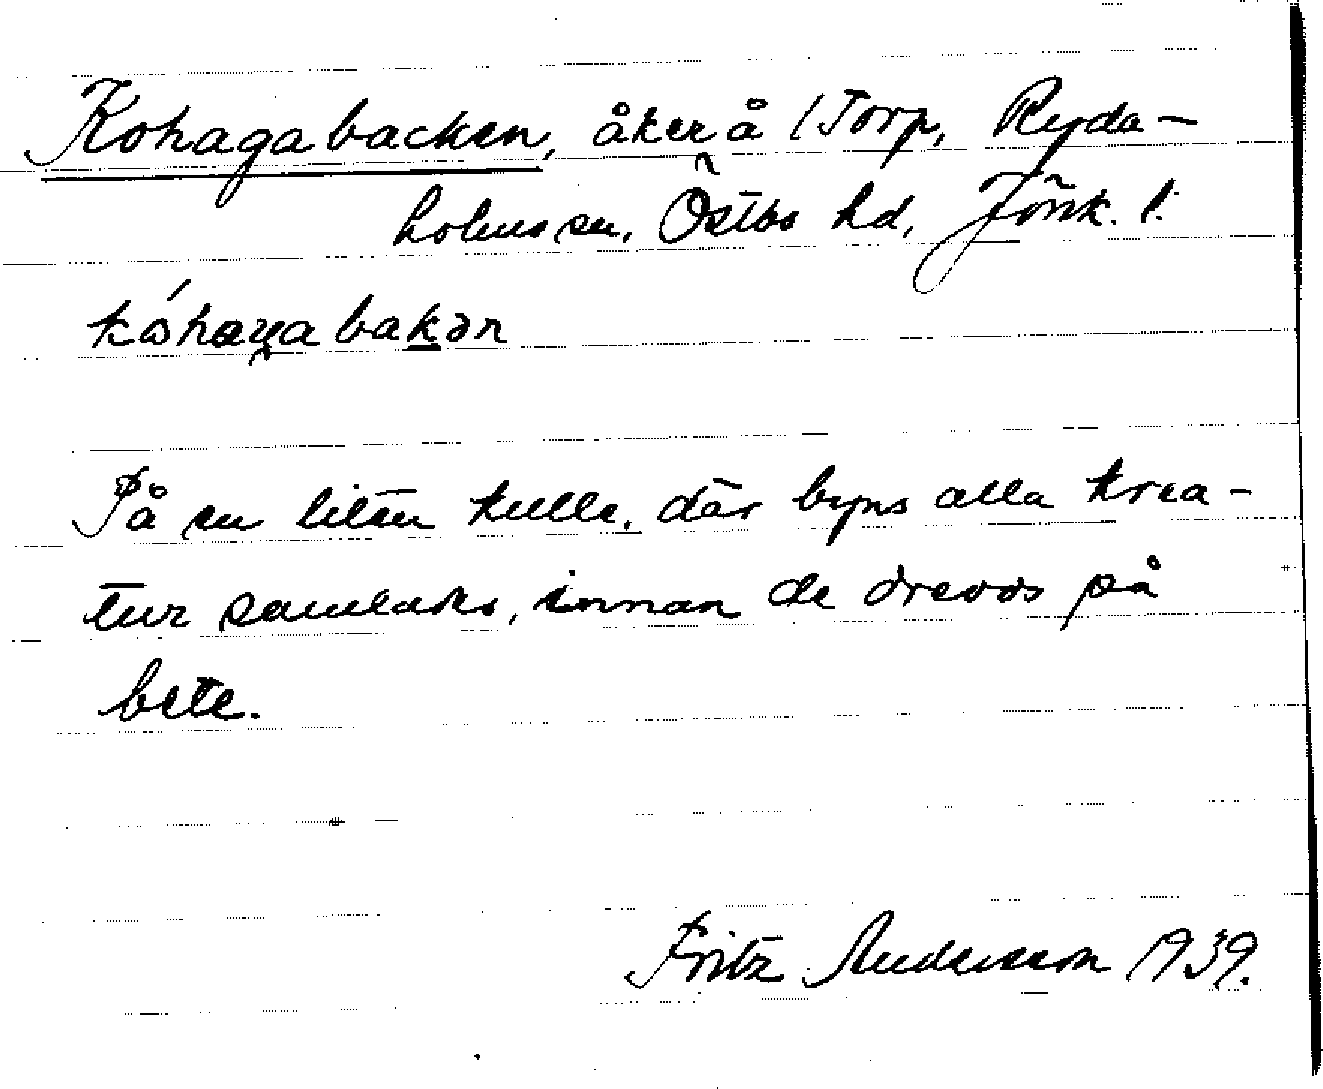 Kohagabacken, åker å 1 Torp, Ryda-
holms sn, Östbo hd, Jönk. l.
kóhaɣabakən
På en liten kulle, där byns alla krea-
tur samlades, innan de drevos på
bete.
Fritz Andersson 1939.